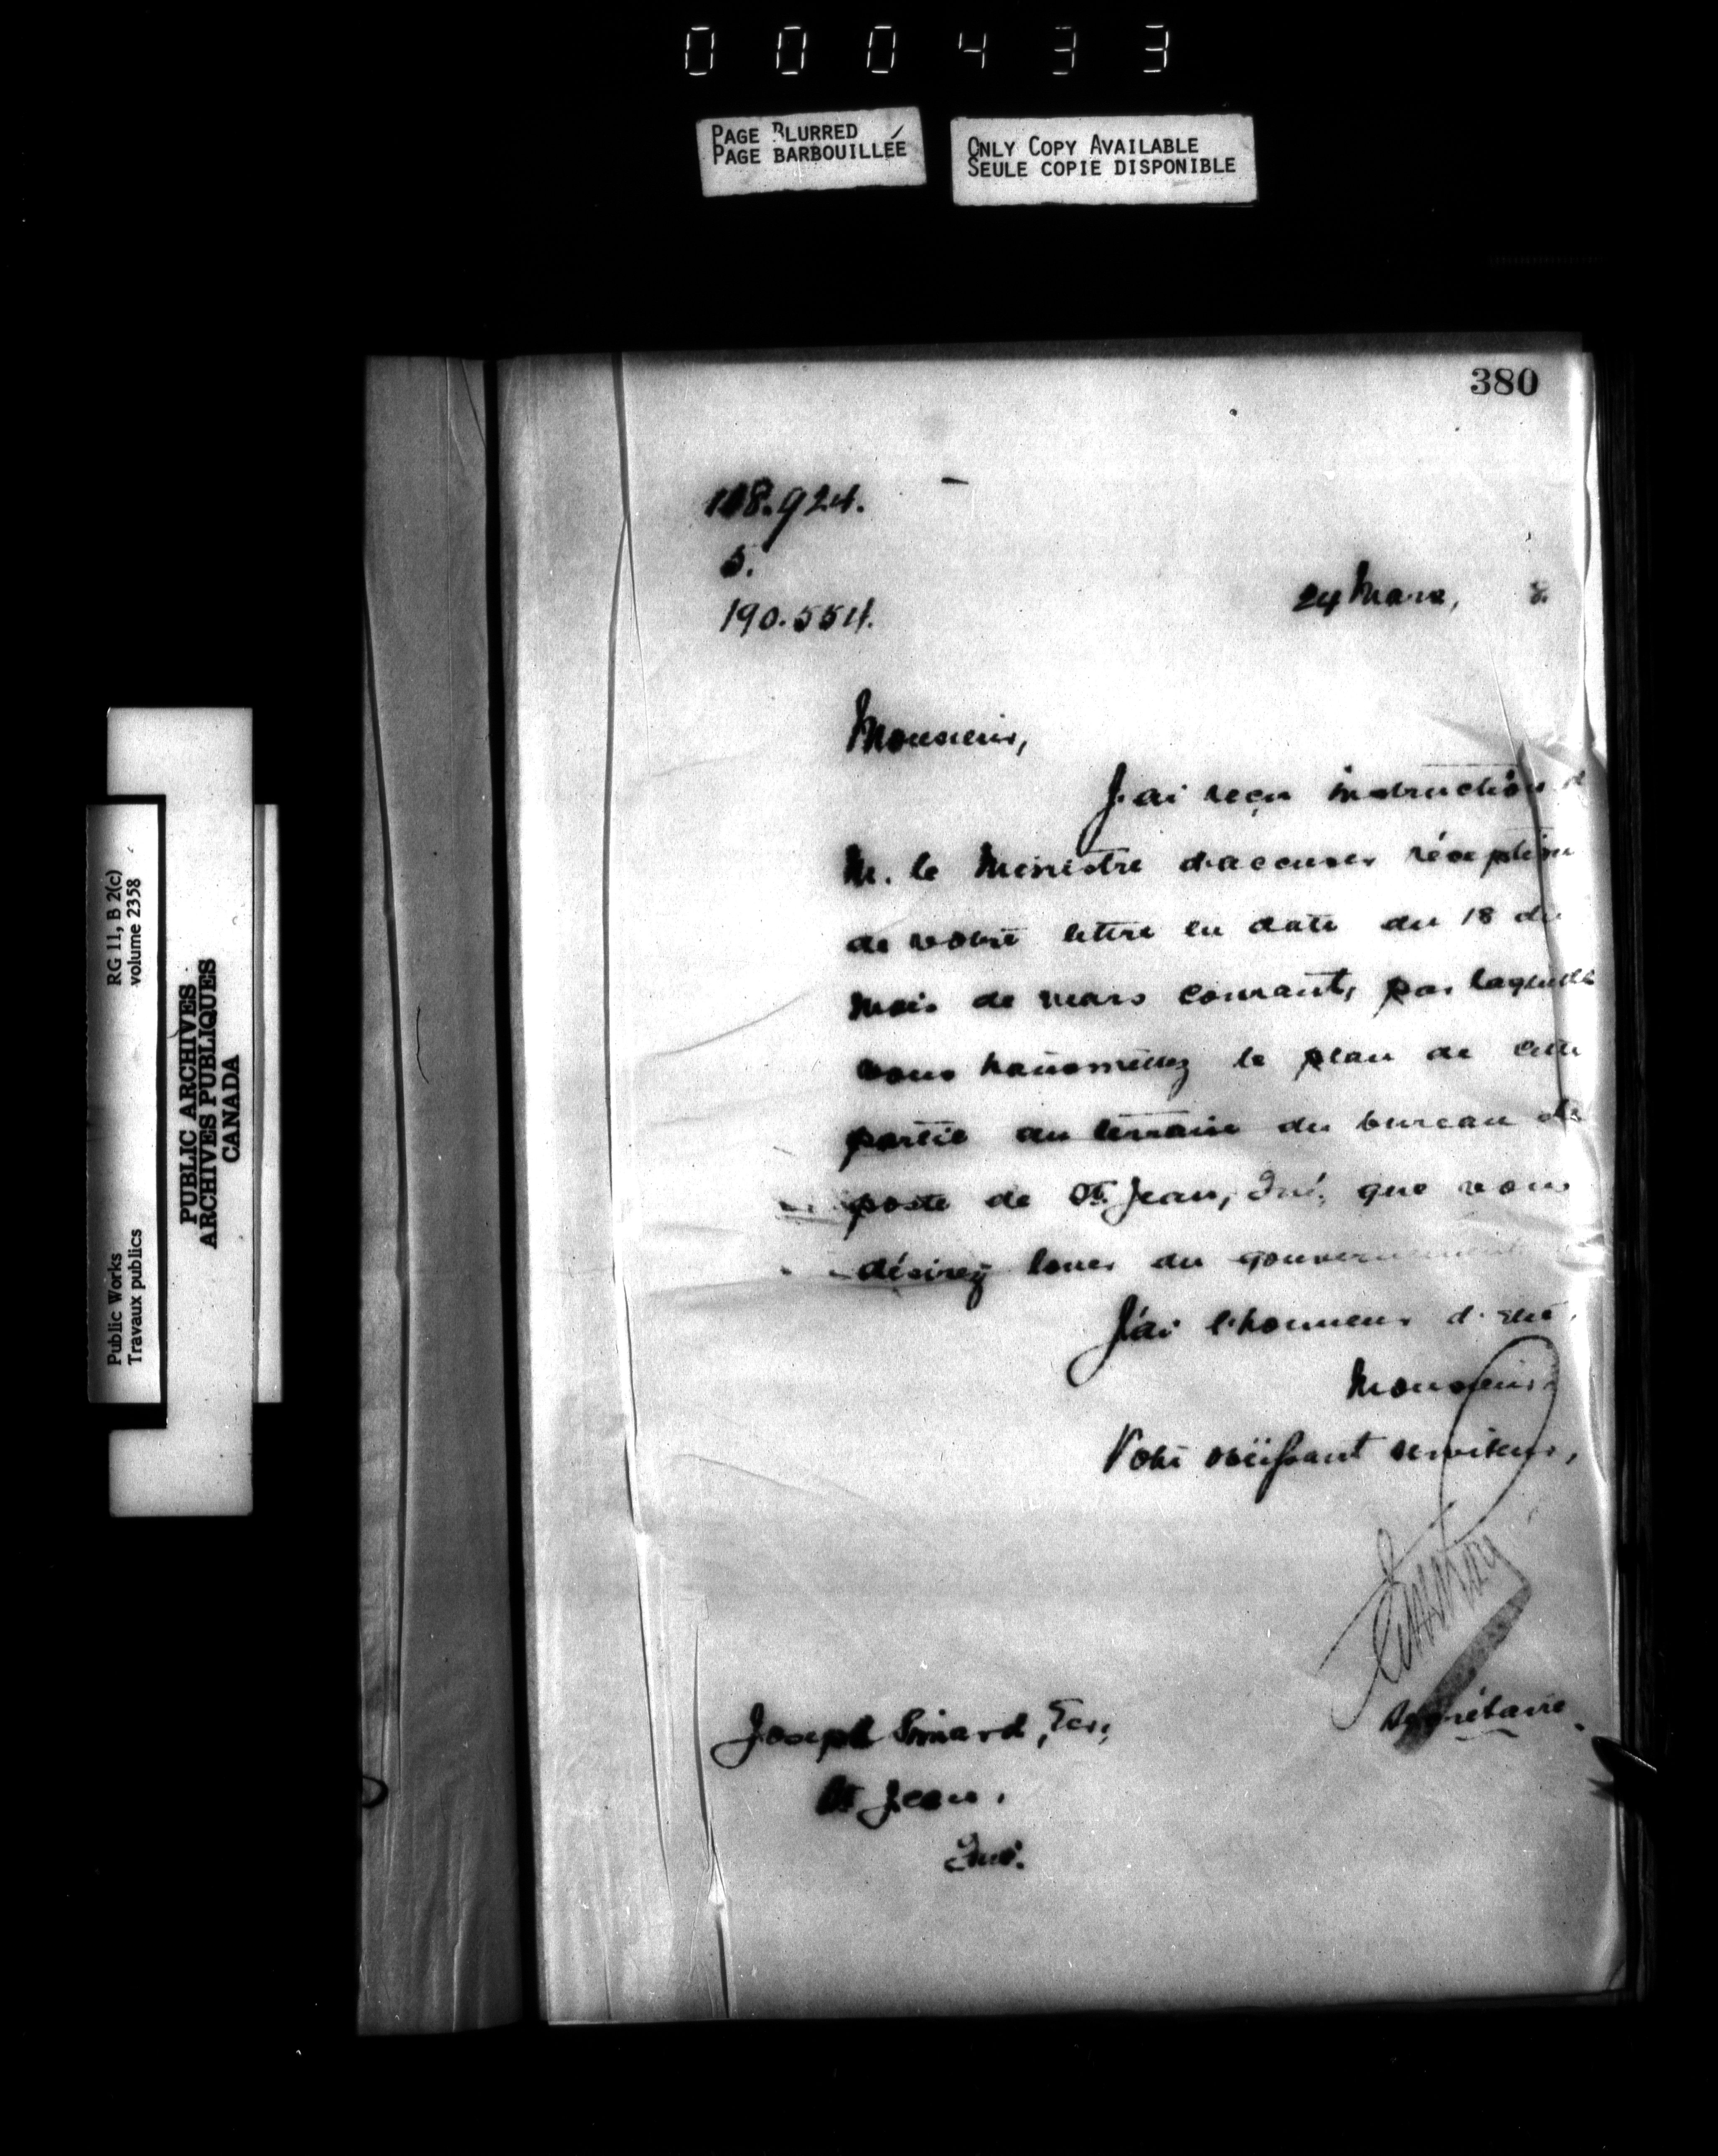 000433
PAGE BLURRED
PAGE BARBOUILLÉE
ONLY COPY AVAILABLE
SEULE COPIE DISPONIBLE
RG 11, B 2(c)
volume 2358
Public Works
Travaux publics
PUBLIC ARCHIVES
ARCHIVES PUBLIQUES
CANADA
380
118.924.
5.
190.554.
24 Mars, 8.
Monsieur,
J'ai reçu instruction d
M. le Ministre d'accuser réception
de votre lettre en date du 18 du
mois de mars courant, par laquelle
vous transmettez le plan de cette
partie du terrain du bureau de
poste de St. Jean, Qué, que vous
désirez louer du gouvernement
J'ai l'honneur d'être,
Monsieur
Votre obéissant serviteur,
Secrétaire.
Joseph Simard, Ecr,
St Jean.
Qué.